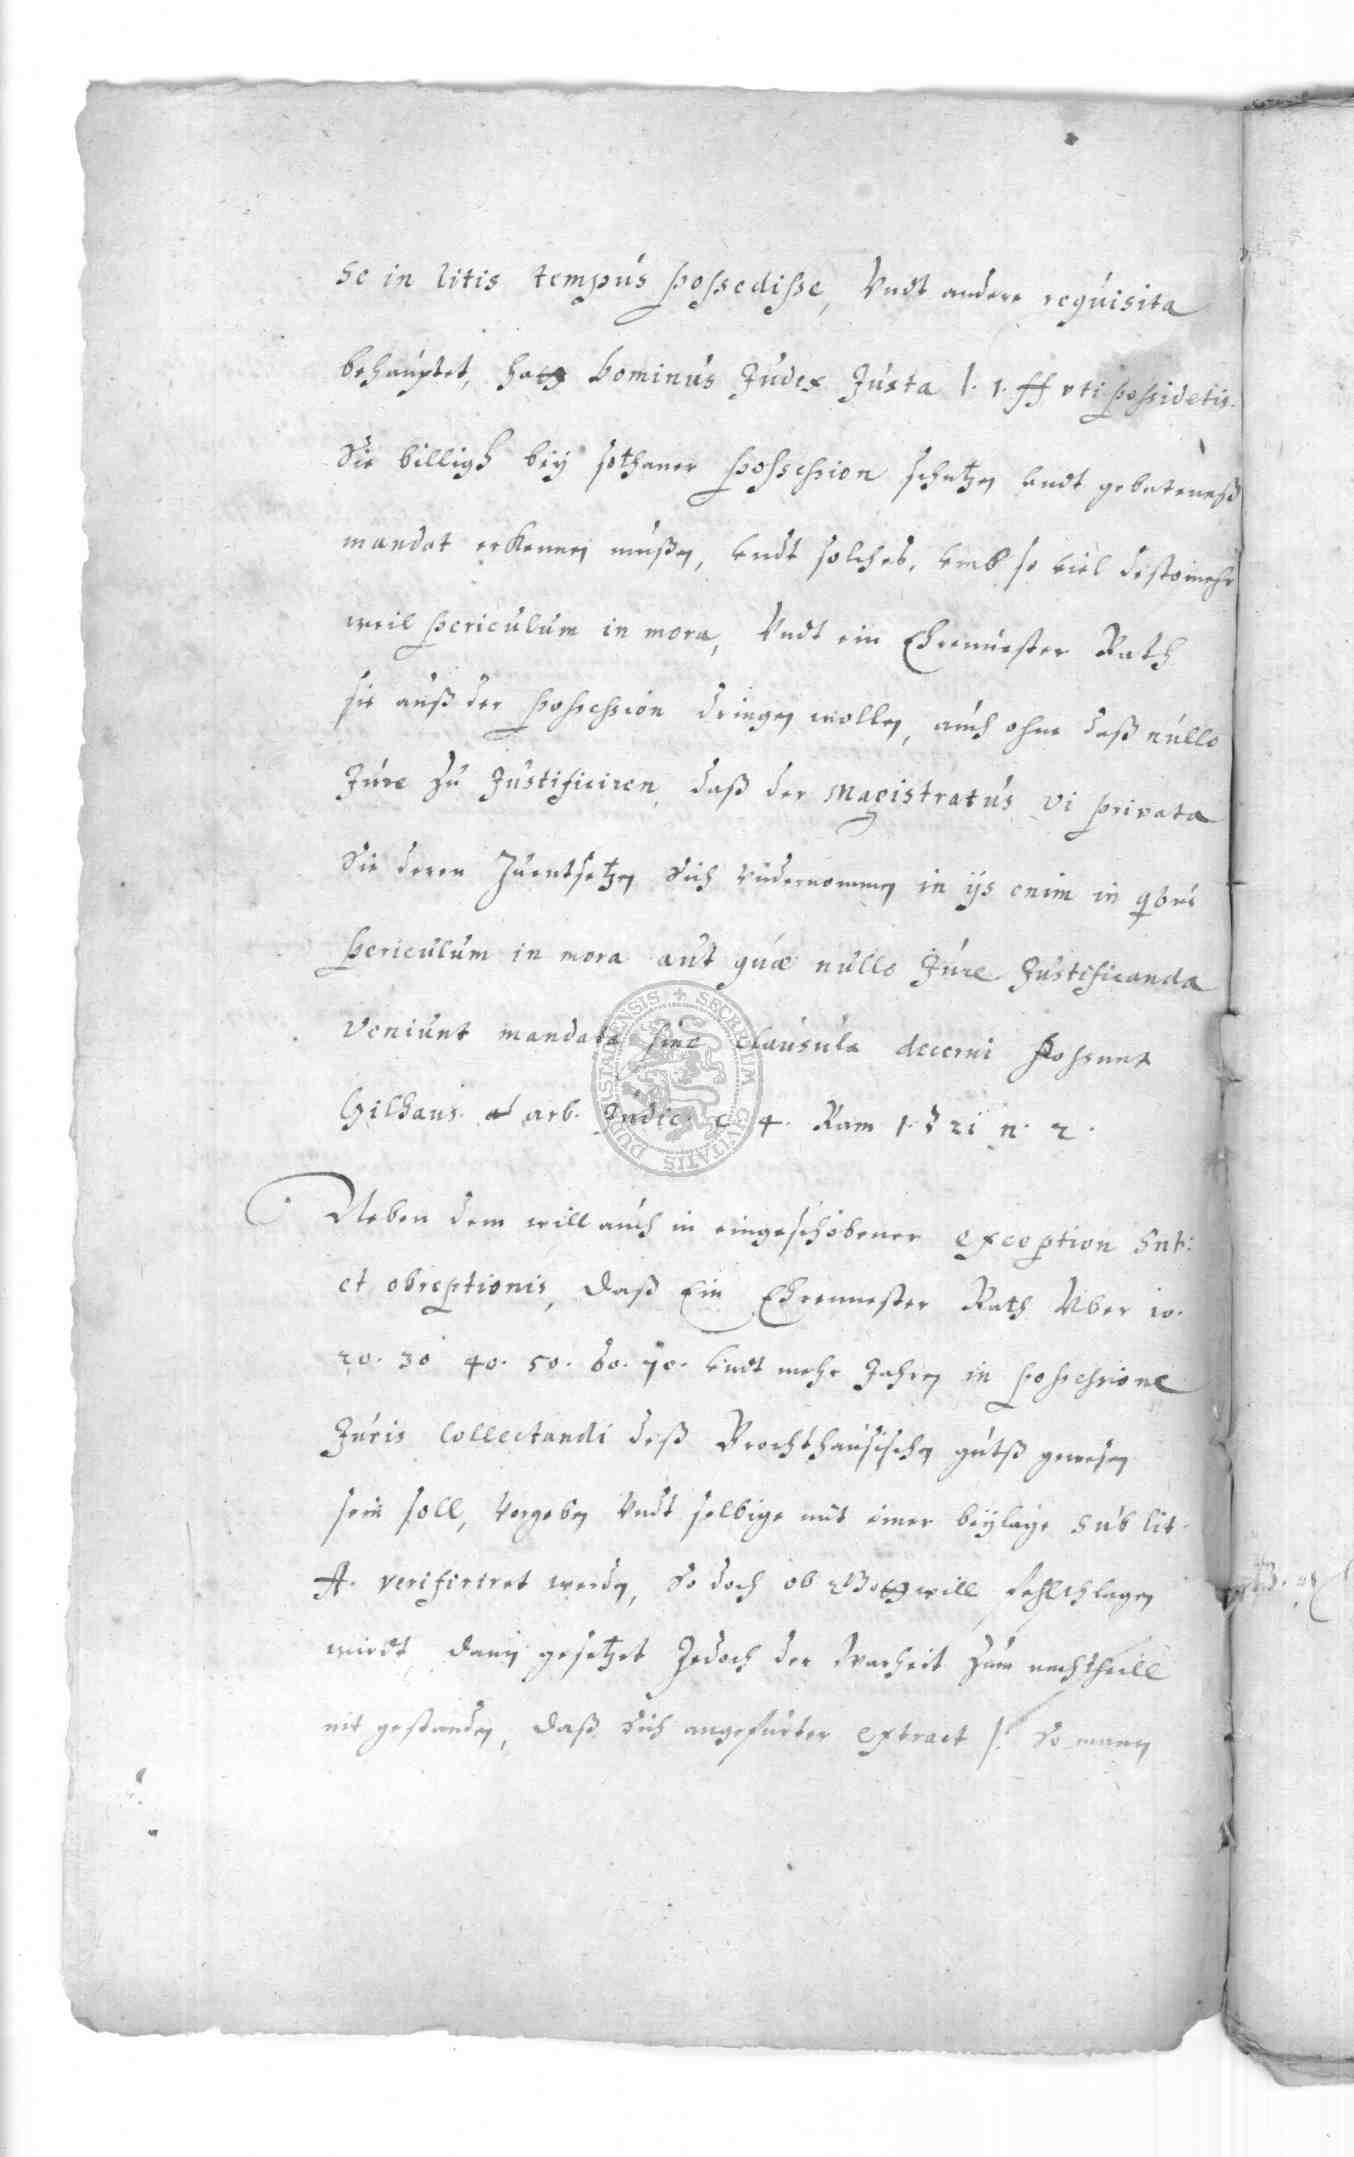 se in litis tempus possedisse, Vndt andere requisita
behauptet, hatt Dominus Judex Juxta l. 1. ff vti possidetis.
Sie billigh bey sothaner possession schutzen vndt gebeteneß
mandat erkennen mußen, vndt solches, vmb so viel destomehr
weil periculum in mora, Vndt ein Ehrenuester Rath
sie auß der possession dringen wollen, auch ohne daß nullo
Jure zu Justificiren, daß der Magistratus vi privata
Sie deren Zuentsetzen Sich vndernommen in ijs enim in qbus
periculum in mora aut quæ nullo Jure Justificanda
veniunt mandata sine clausula decerni possunt
Gilhaus. arb. Judic. c 4. Ram 1. § 21 n. 2.
Neben dem will auch in eingeschobener exception sub:
et obreptionis, daß Ein Ehrenuester Rath Vber 10.
20. 30 40. 50. 60. 70. vndt mehr Jahren in possessione
Juris Collectandi deß Brochthausischen gutß gewesen
sein soll, vorgeben Vndt selbige mit einer beylage sub lit.
A. verificiret werden, So doch ob Gott will fehlschlagen
wirdt, dann gesetzet Jedoch der Warheit zum nachtheill
nit gestanden, daß Sich angefurter extract /: So mann
DUISTADIENSIS + SECRETUM CIVITATIS